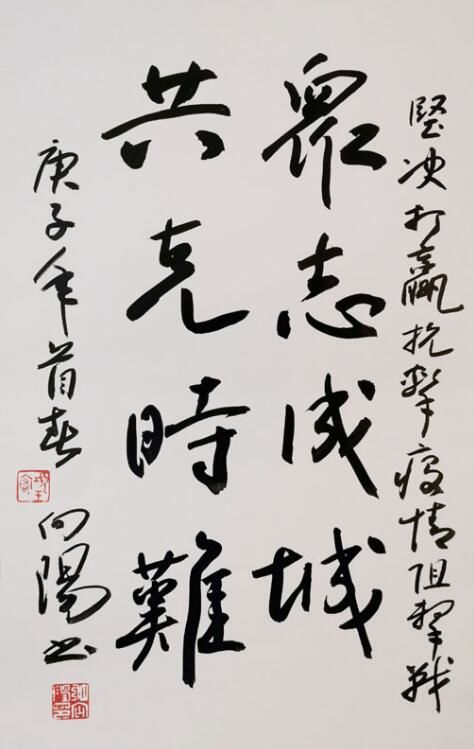 堅决打贏抗擊疫情阻擊戰
眾志成城
共克時難
庚子年首春
向陽书